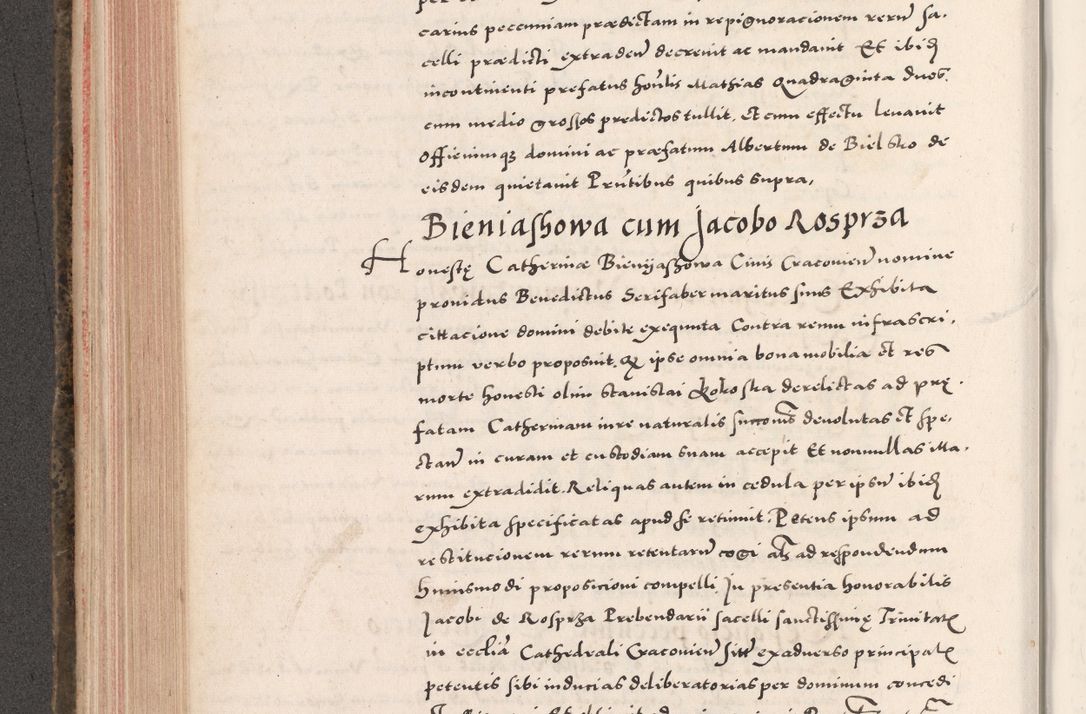 carius peccuniam prædictam in repignoracionem rerum̃ sa.
celli prædicti extraden̄ decrevit ac mandavit Et ibid̄
incontinenti prefatus hon̄lis Mathias Quadraginta duos
cum medio grossos predictos tullit. et cum effectu levavit
Officiumq3 domini ac præfatum Albertum de Bielsko de
eisdem quietavit Prn̄tibus quibus supra,
Bieniashowa cum Jacobo Rosprza
Honestę Catherinæ Bieniashowa Civis Cracovien̄ nomine
providus Benedictus Serifaber maritus suus Exhibita
cittacione domini debite exequuta Contra reum infrascri.
ptum verbo proposuit. Q ipse omnia bona mobilia et res
morte honesti olim Stanislai Kokoska derelictas ad prę.
fatam Catherinam iure naturalis success̄ devolutas et spe.
ctan̄ in curam et custodiam suam accepit Et nonnullas illa.
rum extradidit. Reliquas autem in cedula per ipsum̄ ibid̄
exhibita specificatas apud se retinuit. Petens ipsum ad
restitucionem rerum retentarum̄ cogi al̄s ad respondendum
huiusmodi proposicioni compelli In presentia honorabilis
Jacobi de Rosprza Prebendarii sacelli sanctissimę Trinitatis
in eccl̄ia Cathedrali Cracovien̄ siti exadverso principalis
petentis sibi inducias deliberatorias per dominum concedi